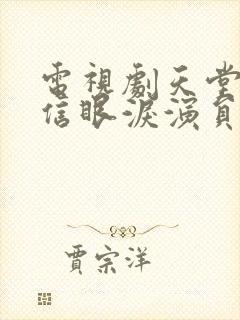 電視劇天堂
信眼淚演員
賈宗洋